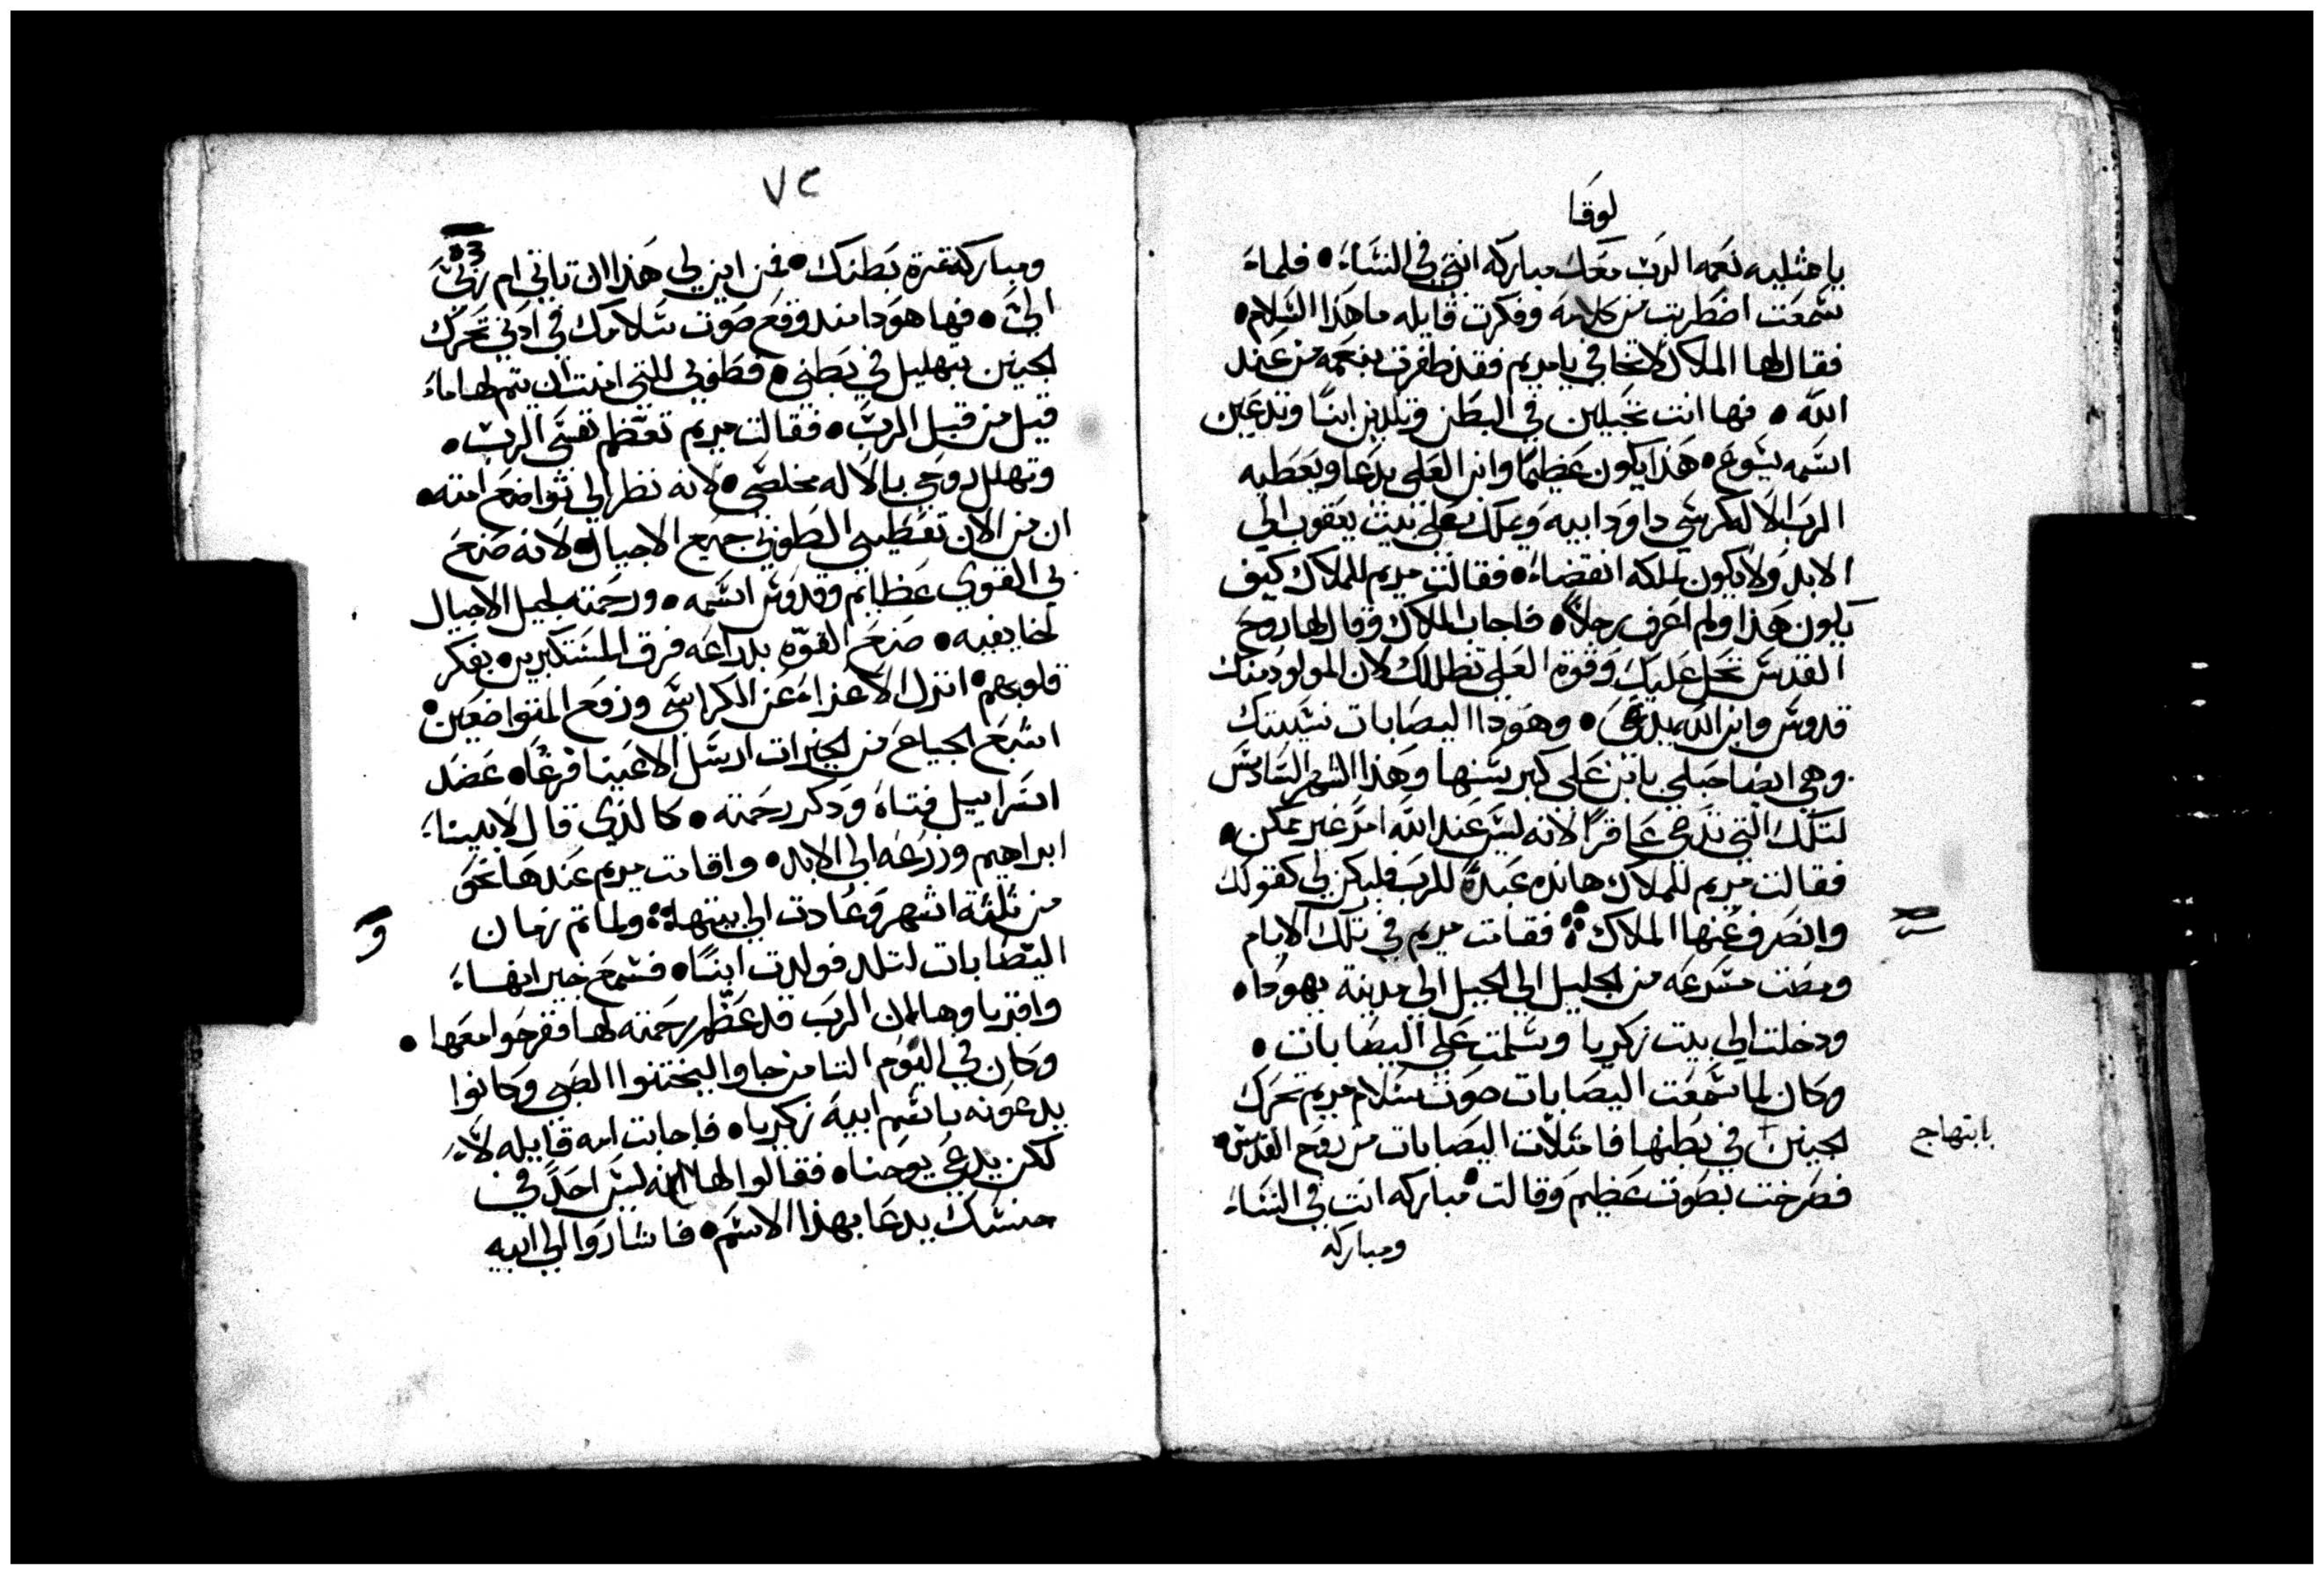 لوقا
يا ممتليه نعمه الرب معك مباركه انتي في النساء • فلماء
سمعت اضطربت من كلامه وفكرت قايله ما هذا السلام •
فقال لها الملاك لا تخافي يا مريم فقد ظفرت بنعمه من عند
الله • فها انت تحبلين في البطن وتلدين ابنًا وتدعين
اسمه يسوع • هذا يكون عظيمًا وابن العلي يدعا ويعطيه
الرب الاله كرسي داود ابيه ويملك على بيت يعقوب الي
الابد ولا يكون لملكه انقضاء • فقالت مريم للملاك كيف
يكون هذا ولم اعرف رجلاً • فاجاب الملاك وقال لها روح
القدس تحل عليك وقوة العلي تظللك لان المولود منك
قدوس وابن الله يدعى • وهودا اليصابات نسيبتك
وهي ايضا حبلي بابن علي كبر سنها وهذا الشهر السادس
لتلك التي تدعي عاقرًا لانه ليس عند الله امرٌ غير ممكن •
فقالت مريم للملاك هانده عبدة للرب فليكن لي كقولك
وانصرف عنها الملاك ܀ فقامت مريم في تلك الايام
ومضت مسرعه من الجليل الي الجبل الي مدينة يهودا •
ودخلت الي بيت زكريا وسلمت علي اليصابات •
وكان لما سمعت اليصابات صوت سلام مريم تحرك
الجنين + في بطنها فامتلات اليصابات من روح القدس •
بابتهاج
فصرخت بصوت عظيم وقالت مباركه انت في النساء
ومباركه
٧٢
ومباركة ثمرة بطنك • فمن اين لي هذا ان تاتي ام ربي
الي • فها هودا منذ وقع صوت سلامك في ادني تحرك
الجنين بتهليل في بطني • فطوبي للتي امنت ان يتم لها ماء
قيل من قبل الرب • فقالت مريم تعظم نفسي الرب •
وتهلل روحي بالاله مخلصي • لانه نظر الي تواضع امته •
ان من الان تعطيني الطوبي جميع الاجيال • لانه صنع
لي القوي عظايم وقدوس اسمه • ورحمته لجيل الاجيال
لخايفيه • صنع القوّه بدراعه فرق المستكبرين بفكر
قلوبهم • انزل الاعزاء عن الكراسي ورفع المتواضعين •
اشبع الجياع من الخيرات ارسل الاغنيا فرغًا • عضد
اسراييل فتاهُ ودكر رحمته • كالدي قال لابيناء
ابراهيم وزرعه الي الابد • واقامت مريم عندها نحو
من ثلثة اشهر وعادت الي بيتها ܀ ولما تم زمان
و
اليصابات لتلد فولدت ابنًا • فسمع جيرانهاء
واقرباوها ان الرب قد عظّم رحمته لها ففرحوا معها •
وكان في اليوم التامن جاوا ليختنوا الصبي وكانوا
يدعونه باسم ابيه زكريا • فاجابت امه قايله لاَء
لكن يدعي يوحنا • فقالوا لها انه ليس احدٌ في
جنسك يدعا بهذا الاسم • فاشاروا الي ابيه